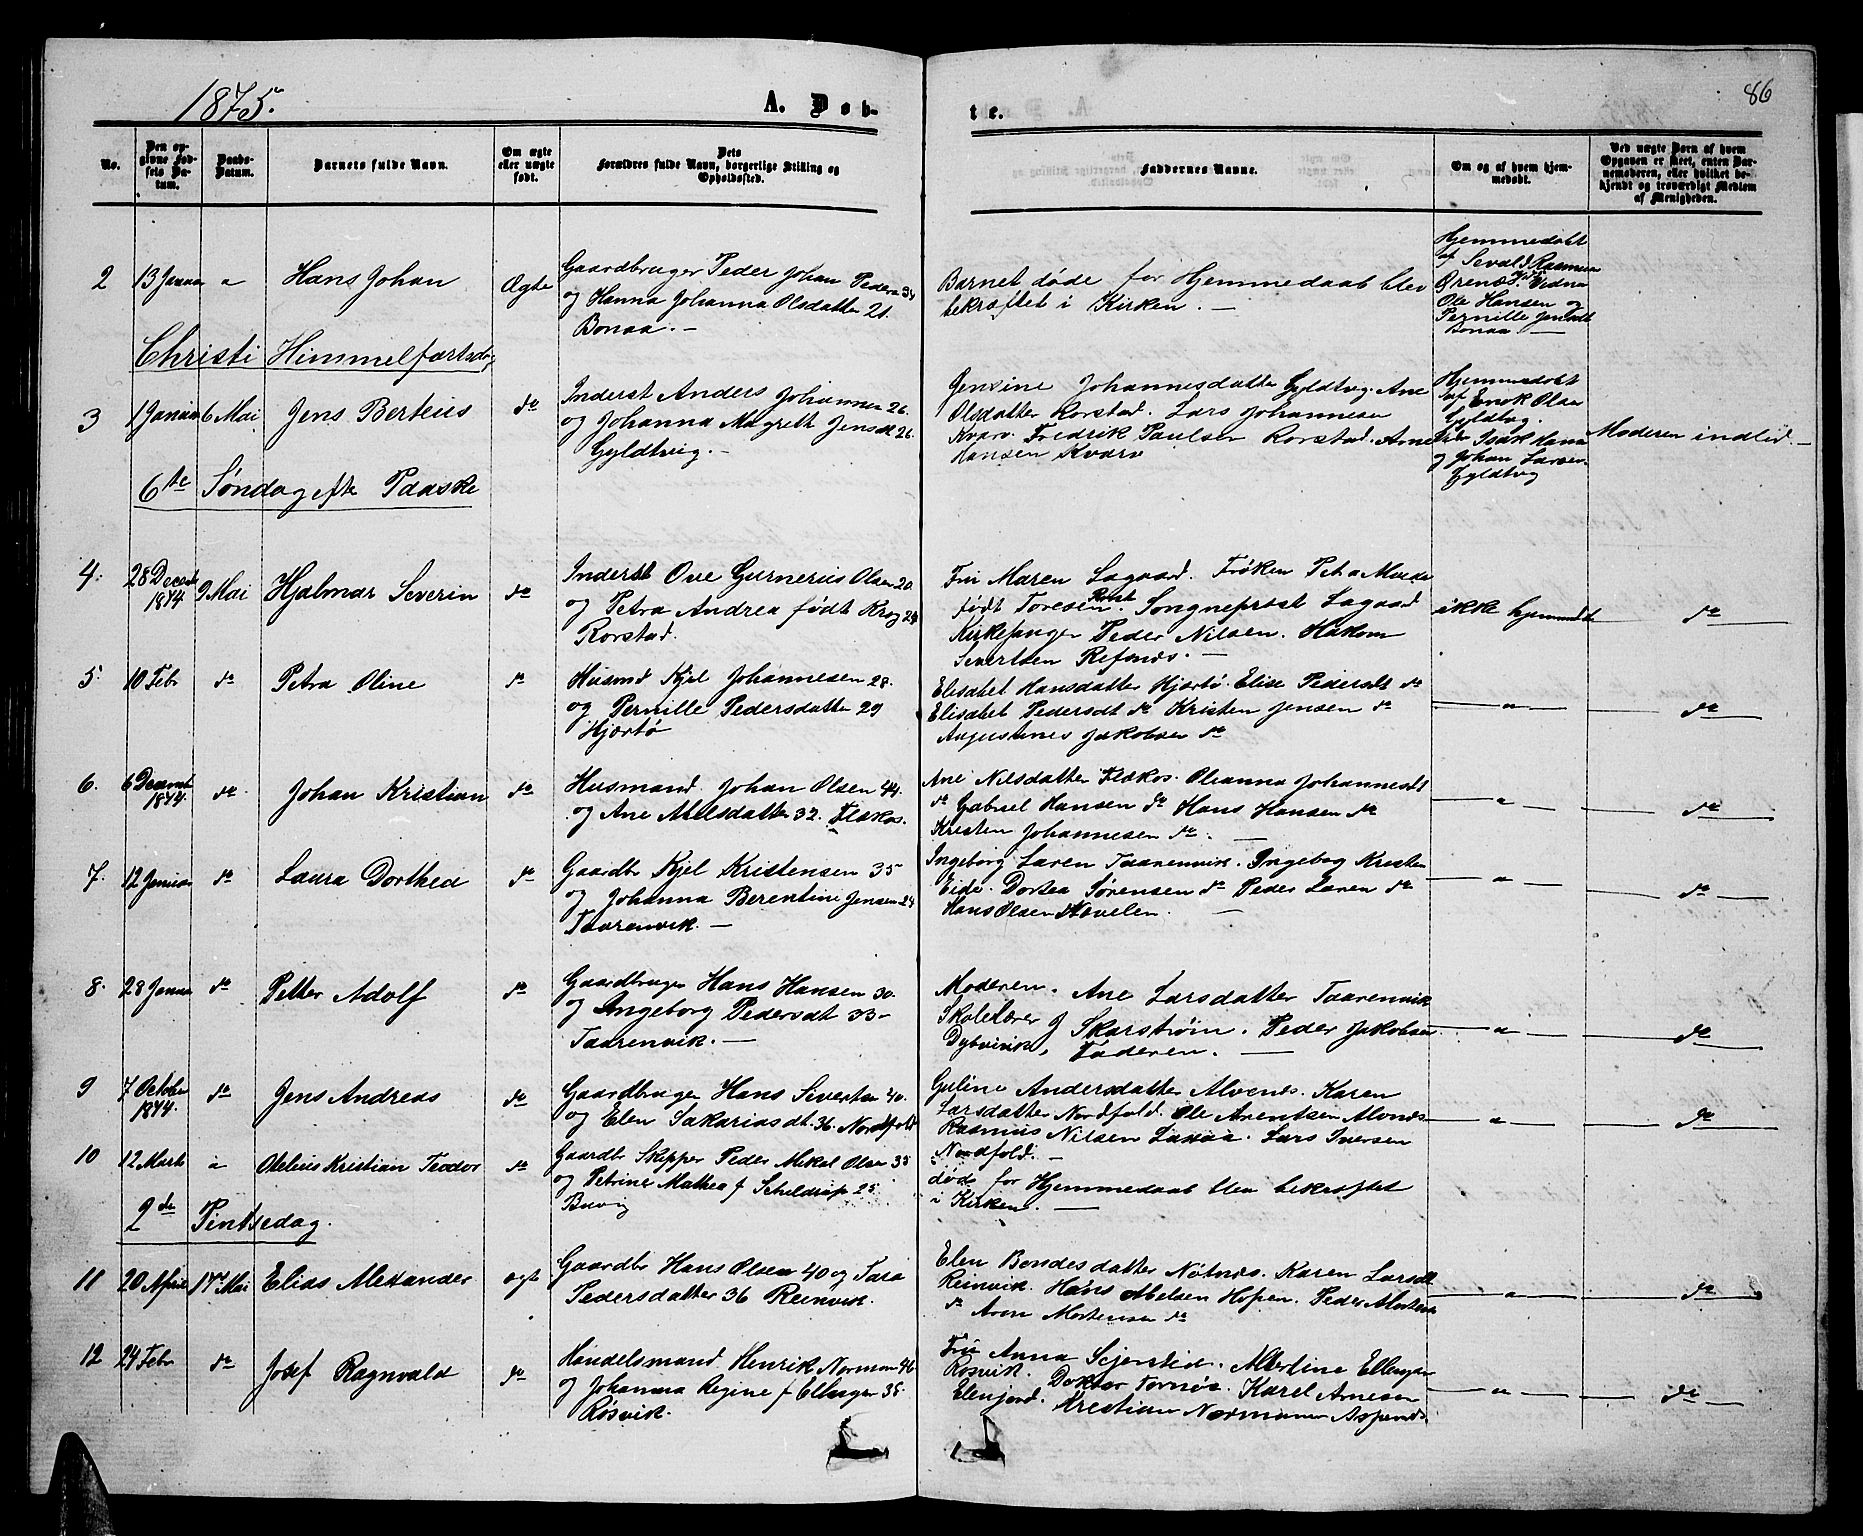 1875.
A. Døb-
te.
86
No.
Den op-
givne Fød-
sels Da-
tum.
Daabs-
Datum.
Barnets fulde Navn.
Om ægte
eller uægte
født.
Dets
Forældres fulde Navn, borgerlige Stilling og
Opholdssted.
Faddernes Navne.
Om og af hvem hjem-
medøbt.
Ved uægte Børn af hvem
Opgaven er skeet, enten Bar-
nemoderen, eller hvilket be-
kjendt og troværdigt Medlem
af Menigheden.
2
13 Janua
Hans Johan
Ægte
Gaardbruger Peder Johan Peders 34
og Hanna Johanna Olsdatter 21.
Bonaa. —
Barnet døde for Hjemmedaab blev
bekræftet i Kirken. —
Hjemmedøbt
af Sevald Rasmus
Ørenes. Vidne
Ole Hansen og
Pernille Jensdt
Bonaa —
Christi Himmelfartsdag
3
1 Januar 6 Mai
Jens Berteus
do
Inderst Anders Johannes 26.
og Johanna Magreth Jensdt 26.
Gyldtvig. —
Jensine Johannesdatter Gyldtvg. Ane
Olsdatter Rorstad. Lars Johannesen
Kvarv. Fredrik Paulsen Rorstad. Arne
Hansen Kvarv
Hjemmedøbt
af Enok Olsen
Gyldtvg.
Isak Hans
og Johan Larsen
Gyldtvg
Moderen indled. —
6te Søndag efte Paaske
4.
28 Decem
1874.
9 Mai
Hjalmar Severin
do
Inderst Ove Gurnerius Olsen 20
og Petra Andrea født Krog 24
Rorstad.
Fru Maren Lagaard. Frøken Petra
født Toresen Rorst. Songneprest Lagaard
Kirkesanger Peder Nilsen. Hakon
Severtsen Refsnes. —
ikke hjemmedt
do
5.
10 Febr
do
Petra Oline
do
Husmd Kjel Johannesen 28.
og Pernille Pedersdatter 29
Hjertø
Elisabet Hansdatter Hjertø. Elise Pedersdt do
Elisabet Pedersdt do Kristen Jensen do
Augustinus Jakobsen do
do
6.
6 Decemb
1874.
do
Johan Kristian
do
Husmand Johan Olsen 44.
og Ane Nilsdatter 32. Flækos.
Ane Nilsdatter Flækos. Oleanna Johannesdt
do Gabriel Hansen do Hans Hansen do
Kristen Johannesen do. —
do
7.
12 Januar
do
Laura Dorthea
do
Gaardbr Kjel Kristensen 35
og Johanna Berentine Jensen 24
Taarenvik. —
Ingeborg Laren Taarenvik. Ingebog Kristen
Eide. Dortea Sørensen do Peder Laren do
Hans Olsen Høvelen. —
do
8.
28 Janua
do
Petter Adolf
do
Gaardbruger Hans Hansen 30.
og Ingeborg Pedersdt 33 —
Taarenvik. —
Moderen. Ane Larsdatter Taarenvik
Skolelærer J Skarstrøm. Peder Jakobsen
Dybvik, Faderen. —
do
9
7 October
1874.
do
Jens Andreas
do
Gaardbruger Hans Sivertsen 40.
og Elen Sakariasdt. 36. Nordfold
Guline Andersdatter Alvenes. Karen
Larsdatter Nordfold. Ole Arentsen Alvnes
Rasmus Nilsen Laxaa. Lars Iversen
Nordfold. —
do
10
12 Marts
Otelius Kristian Teodor
do
Gaardbr Skipper Peder Mikal Olsen 35
og Petrine Mathea f Scheldrup 25
Buvig
døde for Hjemmedaab blev bekræftet
i Kirken. —
2den Pintsedag.
11
20 April
17 Mai
Elias Alexander
ægte
Gaardbr Hans Olsen 40 og Sara
Pedersdatter 36 Reinvik.
Elen Bendesdatter Nøtnes. Karen Larsdt
Reinvik. Hans Abelsen Hopen. Peder Morten
do Aron Mortensen do
do
12
24 Febr
do
Josef Ragnvald
do
Handelsmand Henrik Norman 46
og Johanna Regine f Ellingsen 35.
Røsvik.
Fru Anna Sejersted. Albertine Ellingsen
Rosvik. Doktor Tornøe. Karel Arnesen
Elvfjord. Kristian Normann Aspenes.
do